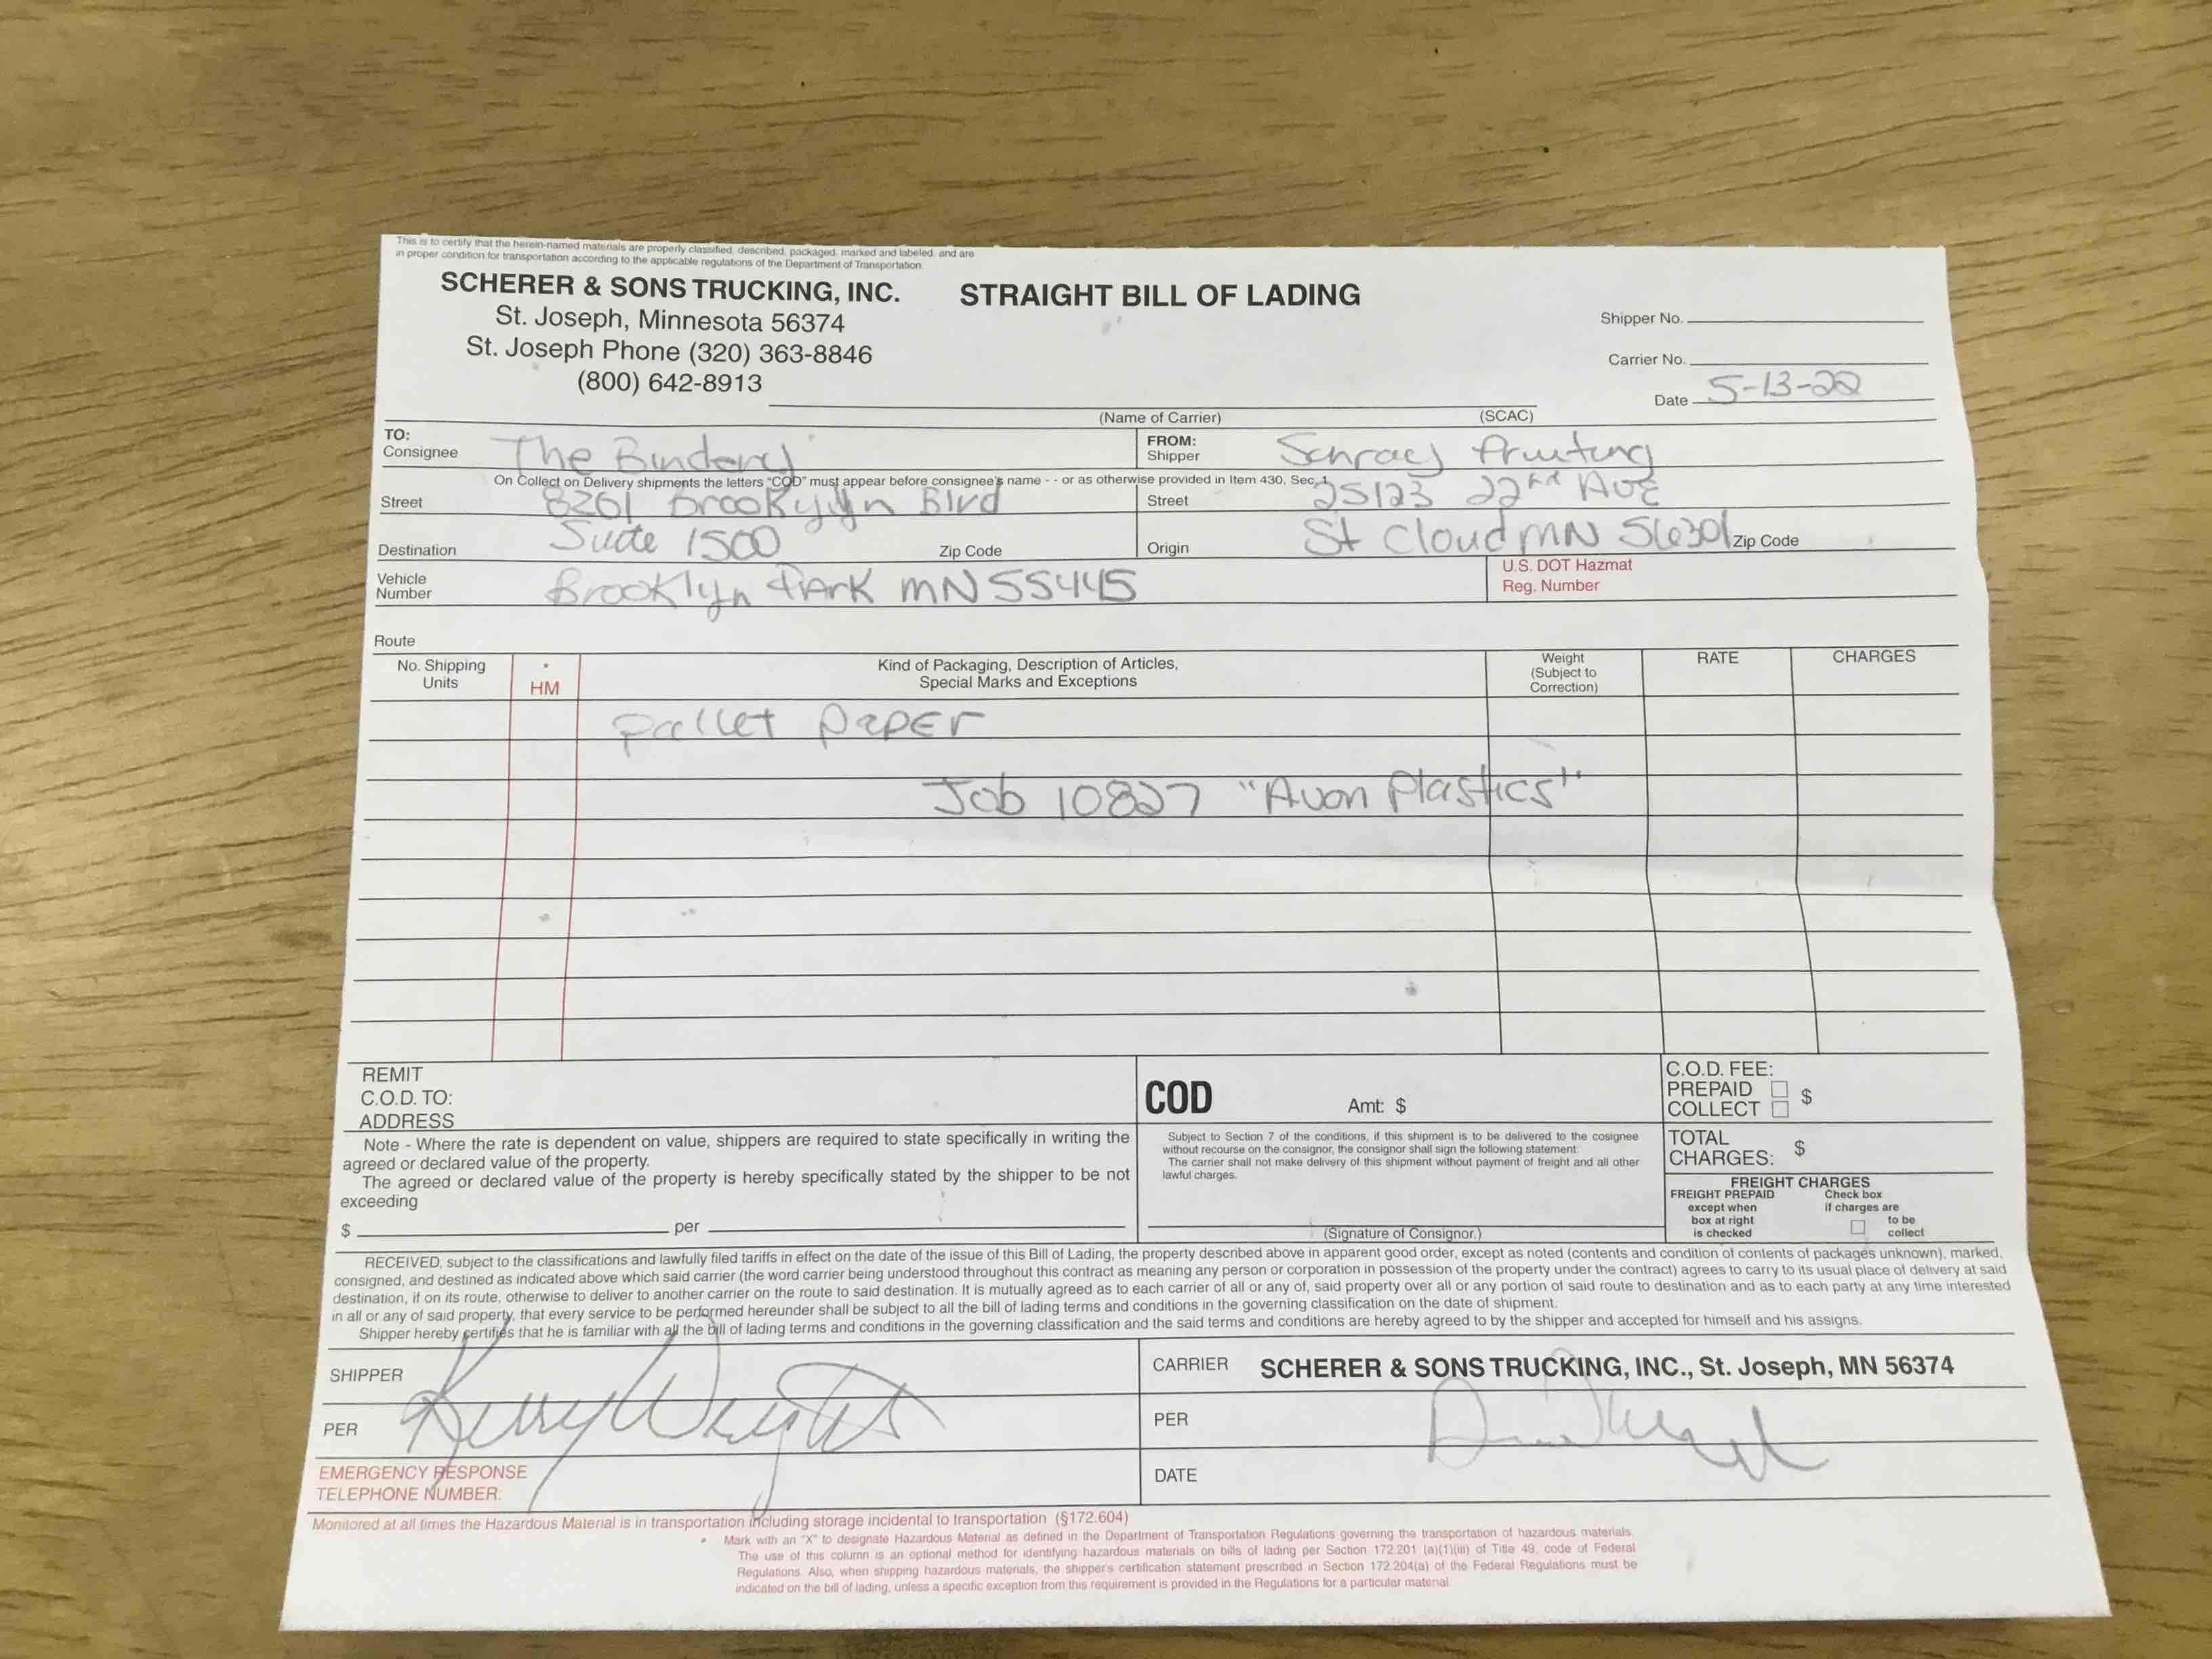 This is to certify that the herein-named materials are properly classified, described, packaged, marked and labeled, and are
in proper condition for transportation according to the applicable regulations of the Department of Transportation.
SCHERER & SONS TRUCKING, INC.
St. Joseph, Minnesota 56374
St. Joseph Phone (320) 363-8846
(800) 642-8913
STRAIGHT BILL OF LADING
Shipper No.
Carrier No.
Date 5-13-22
(Name of Carrier) (SCAC)
TO:
Consignee The Bindery
FROM:
Shipper Schraeg Printing
On Collect on Delivery shipments the letters "COD" must appear before consignee's name - - or as otherwise provided in Item 430, Sec. 1
Street 8261 Brookylyn Blvd
Street 25123 22nd AVE
Destination Suite 1500 Zip Code
Origin St Cloud MN 56301 Zip Code
Vehicle
Number Brooklyn PArk MN 55445
U.S. DOT Hazmat
Reg. Number
Route
No. Shipping
Units
*
HM
Kind of Packaging, Description of Articles,
Special Marks and Exceptions
Weight
(Subject to
Correction)
RATE
CHARGES
pallet paper
Job 10827 "Avon Plastics"
REMIT
C.O.D. TO:
ADDRESS
COD Amt: $
C.O.D. FEE:
PREPAID $
COLLECT
Note - Where the rate is dependent on value, shippers are required to state specifically in writing the
agreed or declared value of the property.
The agreed or declared value of the property is hereby specifically stated by the shipper to be not
exceeding
$ per
Subject to Section 7 of the conditions, if this shipment is to be delivered to the cosignee
without recourse on the consignor, the consignor shall sign the following statement:
The carrier shall not make delivery of this shipment without payment of freight and all other
lawful charges.
(Signature of Consignor.)
TOTAL
CHARGES: $
FREIGHT CHARGES
FREIGHT PREPAID
except when
box at right
is checked
Check box
if charges are
to be
collect
RECEIVED, subject to the classifications and lawfully filed tariffs in effect on the date of the issue of this Bill of Lading, the property described above in apparent good order, except as noted (contents and condition of contents of packages unknown), marked,
consigned, and destined as indicated above which said carrier (the word carrier being understood throughout this contract as meaning any person or corporation in possession of the property under the contract) agrees to carry to its usual place of delivery at said
destination, if on its route, otherwise to deliver to another carrier on the route to said destination. It is mutually agreed as to each carrier of all or any of, said property over all or any portion of said route to destination and as to each party at any time interested
in all or any of said property, that every service to be performed hereunder shall be subject to all the bill of lading terms and conditions in the governing classification on the date of shipment.
Shipper hereby certifies that he is familiar with all the bill of lading terms and conditions in the governing classification and the said terms and conditions are hereby agreed to by the shipper and accepted for himself and his assigns.
SHIPPER
PER Kerry Wright
CARRIER SCHERER & SONS TRUCKING, INC., St. Joseph, MN 56374
PER
DATE
EMERGENCY RESPONSE
TELEPHONE NUMBER:
Monitored at all times the Hazardous Material is in transportation including storage incidental to transportation (§172.604)
* Mark with an "X" to designate Hazardous Material as defined in the Department of Transportation Regulations governing the transportation of hazardous materials.
The use of this column is an optional method for identifying hazardous materials on bills of lading per Section 172.201 (a)(1)(iii) of Title 49, code of Federal
Regulations. Also, when shipping hazardous materials, the shipper's certification statement prescribed in Section 172.204(a) of the Federal Regulations must be
indicated on the bill of lading, unless a specific exception from this requirement is provided in the Regulations for a particular material